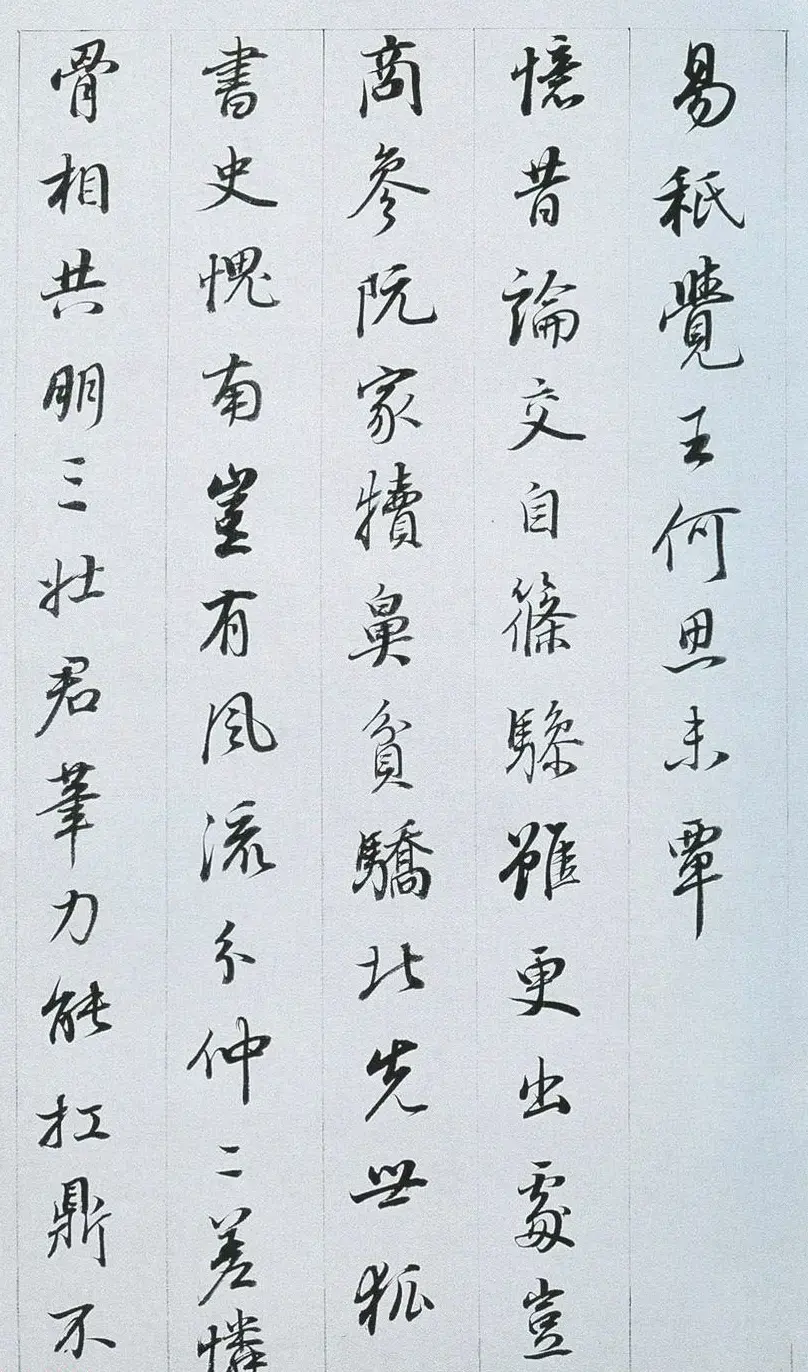 易秖覺王何思未覃
憶昔論交自篠驂雖更出處豈
商參阮家犢鼻貧驕北先世狐
書史愧南豈有風流分仲二差憐
骨相共明三壯君筆力能扛鼎不